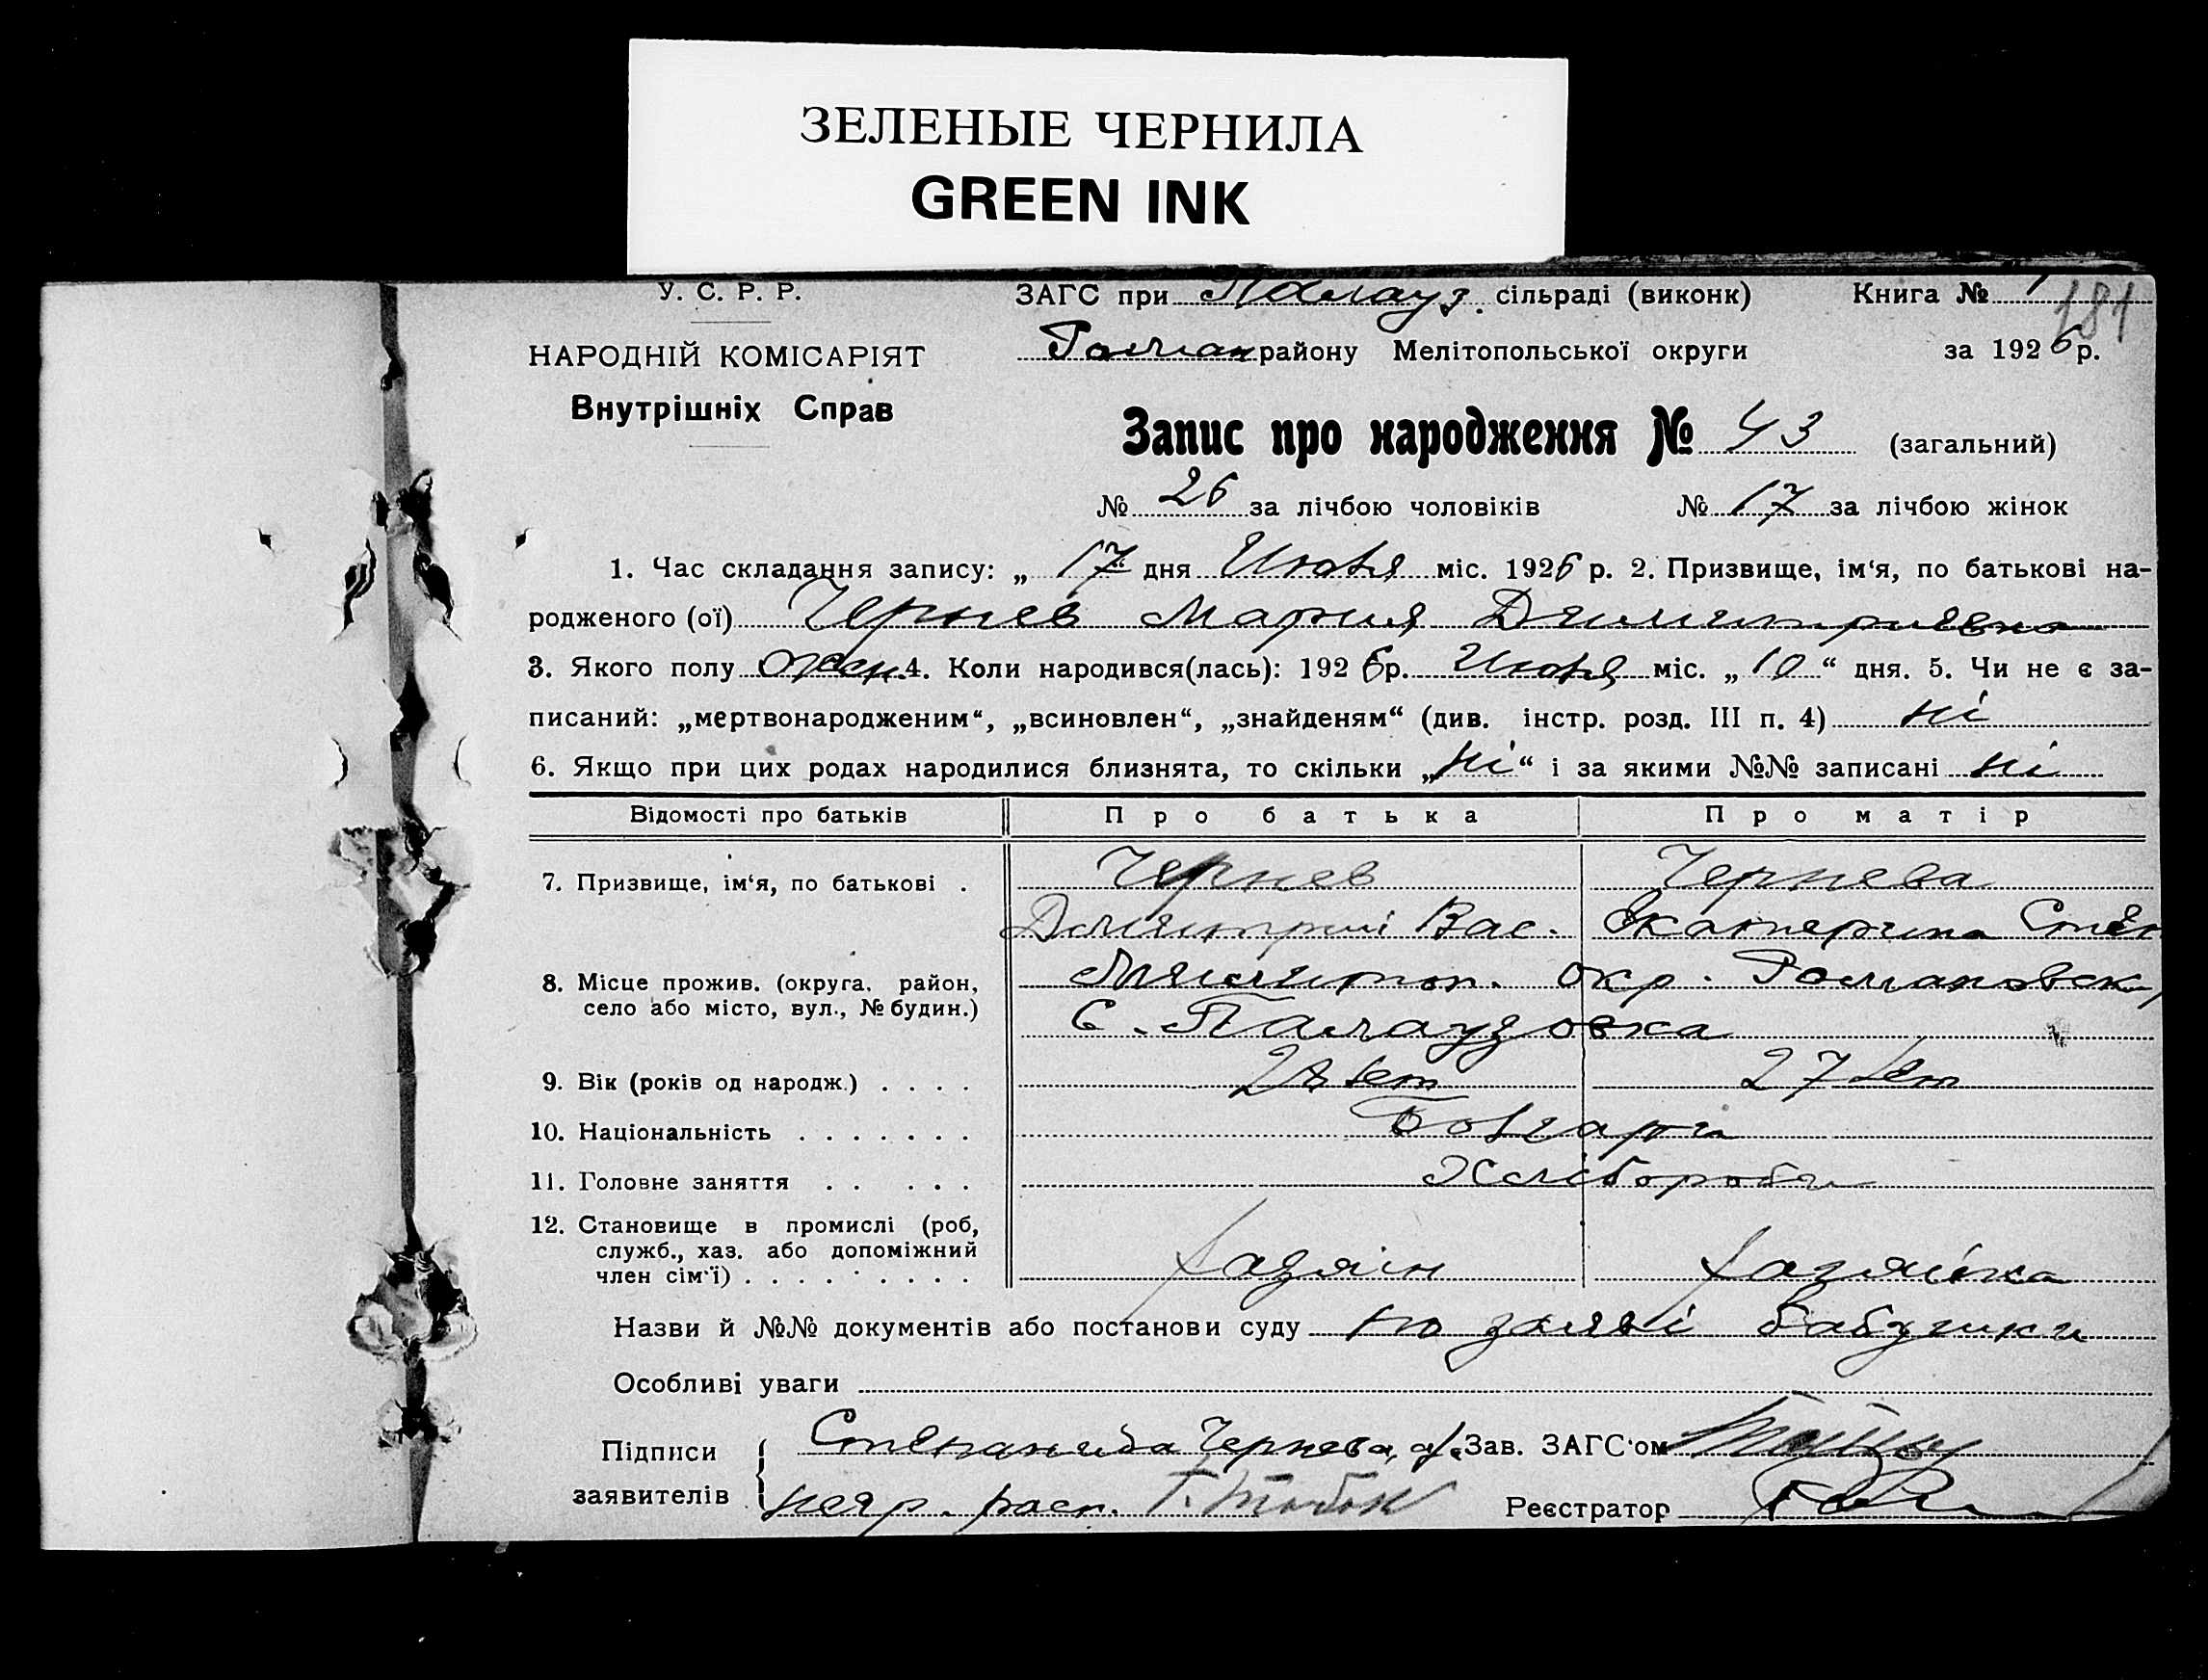 ЗЕЛЕНЫЕ ЧЕРНИЛА
GREEN INK
У. С. Р. Р.
ЗАГС при Палауз. сільраді (виконк)
Книга № 1
181
НАРОДНІЙ КОМІСАРІЯТ
Роман району Мелітопольської округи
за 1926 р.
Внутрішніх Справ
Запис про народження № 43 (загальний)
№ 26 за лічбою чоловіків № 17 за лічбою жінок
1. Час складання запису: „ 17 дня Июля міс. 1926 р. 2. Призвище, ім‘я, по батькові на-
родженого (ої) Чернев Мария Дмитриевна
3. Якого полу жен. 4. Коли народився(лась): 1926 р. Июля міс. „ 10 “ дня. 5. Чи не є за-
писаний: „мертвонародженим“, „всиновлен“, „знайденям“ (див. інстр. розд. III п. 4) ні
6. Якщо при цих родах народилися близнята, то скільки „ні“ і за якими №№ записані ні
Відомості про батьків Про батька Про матір
7. Призвище, ім‘я, по батькові . Чернев Чернева
Дмитрий Вас. Екатерина Степ
8. Місце прожив. (округа, район, село або місто, вул., № будин.) Мелитоп. окр. Романовск
С. Палаузовка
9. Вік (років од народж.) . . . . 28 лет 27 лет
10. Національність . . . . . . . Болгари
11. Головне заняття . . . . . Хлібороби
12. Становище в промислі (роб,
служб., хаз. або допоміжний
член сім‘ї) . . . . . . . . . хазяін хазяйка
Назви й №№ документів або постанови суду по заяві бабушки
Особливі уваги
Підписи Степанида Чернева, а/ Зав. ЗАГС‘ом
заявителів негр. расп. Реєстратор